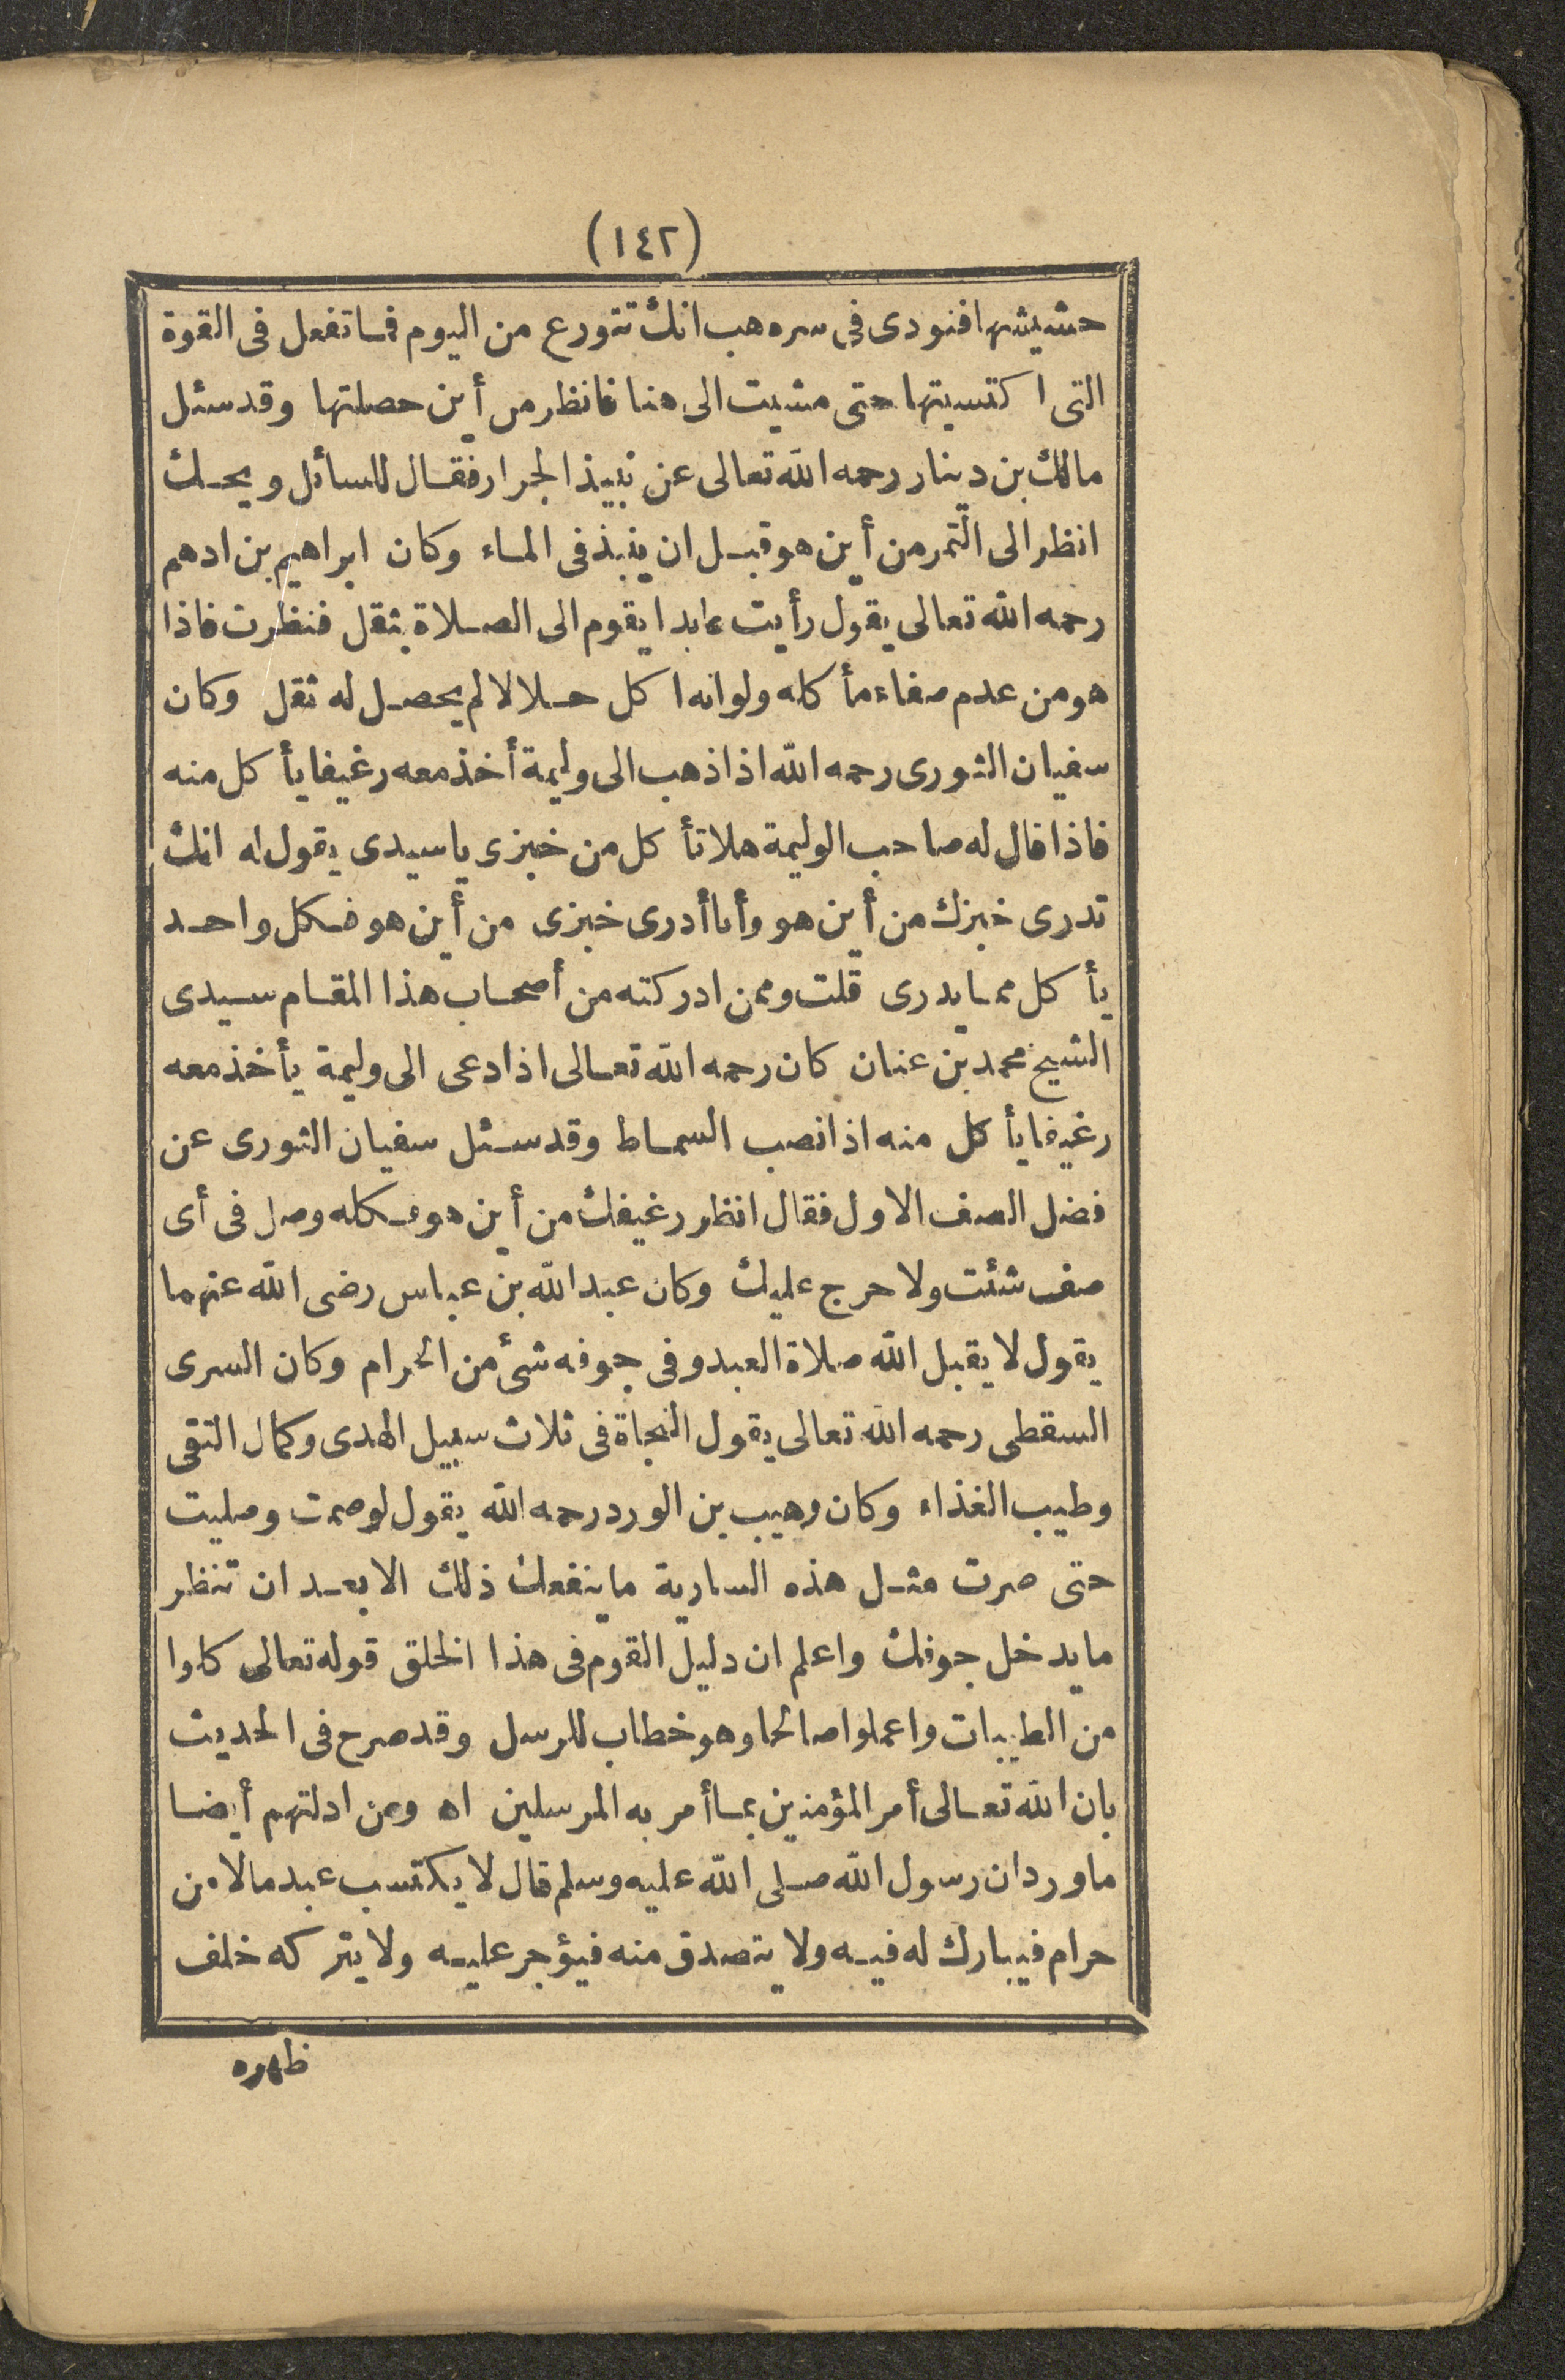 (١٤٢)
حشيشها فنودى فى سره هب انك تتورع من اليوم فما تفعل فى القوة
التى اكتسبتها حتى مشيت الى هنا فانظر من أين حصلتها وقد سئل
مالك بن دينار رحمه الله تعالى عن نبيذ الجرار فقال للسائل ويحك
انظر الى التمر من أين هو قبل ان ينبذ فى الماء وكان ابراهيم بن ادهم
رحمه الله تعالى يقول رأيت عابدا يقوم الى الصلاة بثقل فنظرت فاذا
هو من عدم صفاء مأكله ولو انه اكل حلالا لم يحصل له ثقل وكان
سفيان الثورى رحمه الله اذا ذهب الى وليمة أخذ معه رغيفا يأكل منه
فاذا قال له صاحب الوليمة هلا تأكل من خبزى يا سيدى يقول له انك
تدرى خبزك من أين هو وأنا أدرى خبزى من أين هو فكل واحد
يأكل مما يدرى قلت وممن ادركته من أصحاب هذا المقام سيدى
الشيخ محمد بن عنان كان رحمه الله تعالى اذا دعى الى وليمة يأخذ معه
رغيفا يأكل منه اذا نصب السماط وقد سئل سفيان الثورى عن
فضل الصف الاول فقال انظر رغيفك من أين هو فكله وصل فى أى
صف شئت ولا حرج عليك وكان عبد الله بن عباس رضى الله عنهما
يقول لا يقبل الله صلاة العبد وفى جوفه شئ من الحرام وكان السرى
السقطى رحمه الله تعالى يقول النجاة فى ثلاث سبيل الهدى وكمال التقى
وطيب الغذاء وكان وهيب بن الورد رحمه الله يقول لو صمت وصليت
حتى صرت مثل هذه السارية ما ينفعك ذلك الا بعد ان تنظر
ما يدخل جوفك واعلم ان دليل القوم فى هذا الخلق قوله تعالى كلوا
من الطيبات واعملوا صالحا وهو خطاب للرسل وقد صرح فى الحديث
بان الله تعالى أمر المؤمنين بما أمر به المرسلين اه ومن ادلتهم أيضا
ما ورد ان رسول الله صلى الله عليه وسلم قال لا يكتسب عبد مالا من
حرام فيبارك له فيه ولا يتصدق منه فيؤجر عليه ولا يتركه خلف
ظهره